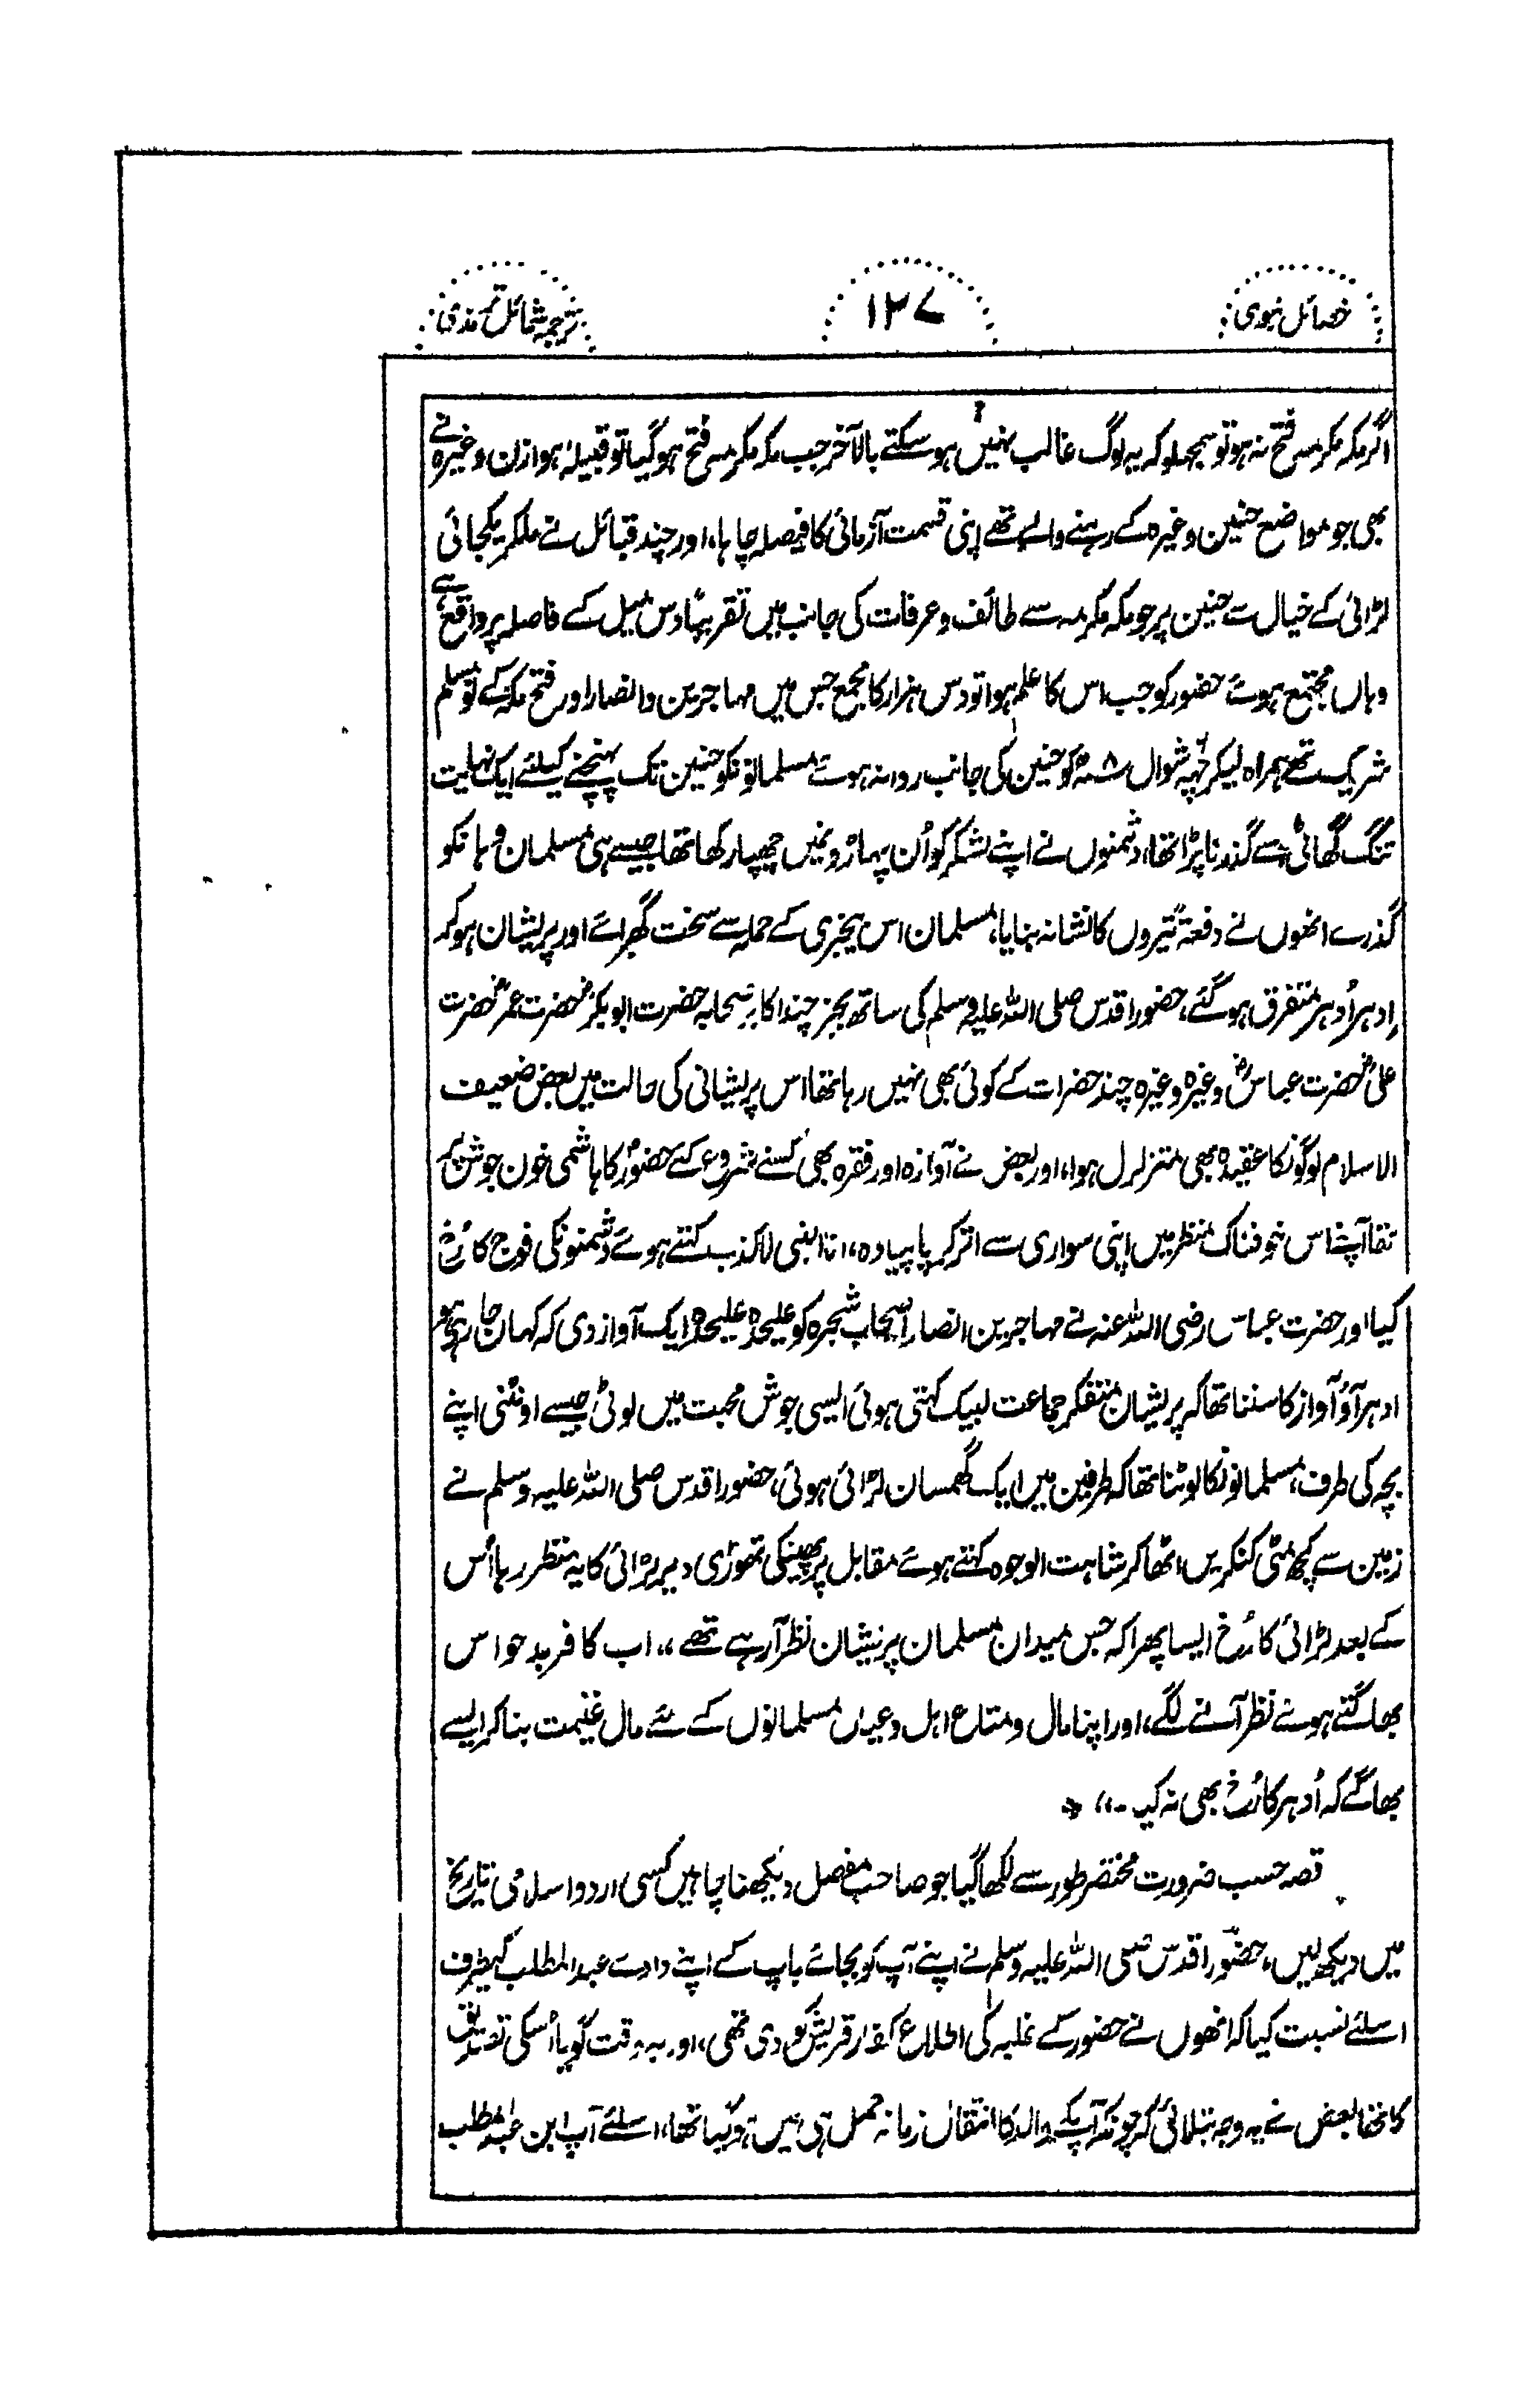 خصائل نبوی
۱۲۷
ترجمہ شمائل ترمذی
اگر مکہ مکرمہ فتح نہ ہو تو سمجھ لو کہ یہ لوگ غالب نہیں ہو سکتے بالآخر جب مکہ مکرمہ فتح ہو گیا تو قبیلۂ ہوازن وغیرہ نے
بھی جو مواضع حنین وغیرہ کے رہنے والے تھے اپنی قسمت آزمائی کا فیصلہ چاہا، اور چند قبائل نے ملکر یکجائی
لڑائی کے خیال سے حنین پر جو مکہ مکرمہ سے طائف و عرفات کی جانب میں تقریباً دس میل کے فاصلہ پر واقع ہے
وہاں مجتمع ہوئے حضور کو جب اس کا علم ہوا تو دس ہزار کا مجمع جس میں مہاجرین و انصار اور فتح مکہ کے نو مسلم
شریک تھے ہمراہ لیکر چھہ شوال ۸ھ کو حنین کی جانب روانہ ہوئے مسلمانونکو حنین تک پہنچنے کیلئے ایک نہایت
تنگ گھاٹی سے گذرنا پڑا تھا، دشمنوں نے اپنے لشکر کو اُن پہاڑونمیں چھپا رکھا تھا جیسے ہی مسلمان وہانکو
گذرے انھوں نے دفعۃً تیروں کا نشانہ بنایا، مسلمان اس بیخبری کے حملہ سے سخت گھبرائے اور پریشان ہو کر
اِدہر اُدہر متفرق ہو گئے، حضور اقدس صلی اللہ علیہ وسلم کی ساتھ بجز چند اکابر صحابہ حضرت ابوبکرؓ حضرت عمرؓ حضرت
علیؓ حضرت عباسؓ وغیرہ وغیرہ چند حضرات کے کوئی بھی نہیں رہا تھا اس پریشانی کی حالت میں بعض ضعیف
الاسلام لوگونکا عقیدہ بھی متزلزل ہوا، اور بعض نے آوازہ اور فقرہ بھی کسنے شروع کئے حضورؐ کا ہاشمی خون جوش پر
تھا آپنے اس خوفناک منظر میں اپنی سواری سے اتر کر پا پیادہ، انا النبی لا کذب کہتے ہوئے دشمنونکی فوج کا رُخ
کیا اور حضرت عباس رضی اللہ عنہ نے مہاجرین انصار اصحاب شجرہ کو علیحدہ علیحدہ ایک آواز دی کہ کہاں جا رہے ہو
ادہر آؤ آواز کا سننا تھا کہ پریشان متفکر جماعت لبیک کہتی ہوئی ایسی جوش محبت میں لوٹی جیسے اونٹنی اپنے
بچہ کی طرف، مسلمانونکا لوٹنا تھا کہ طرفین میں ایک گھمسان لڑائی ہوئی، حضور اقدس صلی اللہ علیہ وسلم نے
زمین سے کچھ مٹی کنکریں اٹھا کر شاہت الوجوہ کہتے ہوئے مقابل پر پھینکی تھوڑی دیر لڑائی کا یہ منظر رہا اُس
کے بعد لڑائی کا رُخ ایسا پھرا کہ جس میدان مسلمان پریشان نظر آ رہے تھے،، اب کافر بدحواس
بھاگتے ہوئے نظر آنے لگے، اور اپنا مال و متاع اہل و عیال مسلمانوں کے لئے مال غنیمت بنا کر ایسے
بھاگے کہ اُدہر کا رُخ بھی نہ کیا۔،،
قصہ حسب ضرورت مختصر طور سے لکھا گیا جو صاحب مفصل دیکھنا چاہیں کسی اردو اسلامی تاریخ
میں دیکھ لیں، حضور اقدس صلی اللہ علیہ وسلم نے اپنے آپ کو بجائے باپ کے اپنے دادے عبد المطلب کیطرف
اسلئے نسبت کیا کہ انھوں نے حضور کے غلبہ کی اطلاع کفار قریش کو دی تھی، اور یہ وقت گویا اُسکی تصدیق
کا تھا بعض نے یہ وجہ بتلائی کہ چونکہ آپکے والد کا انتقال زمانہ حمل ہی میں ہو گیا تھا، اسلئے آپ ابن عبد المطلب